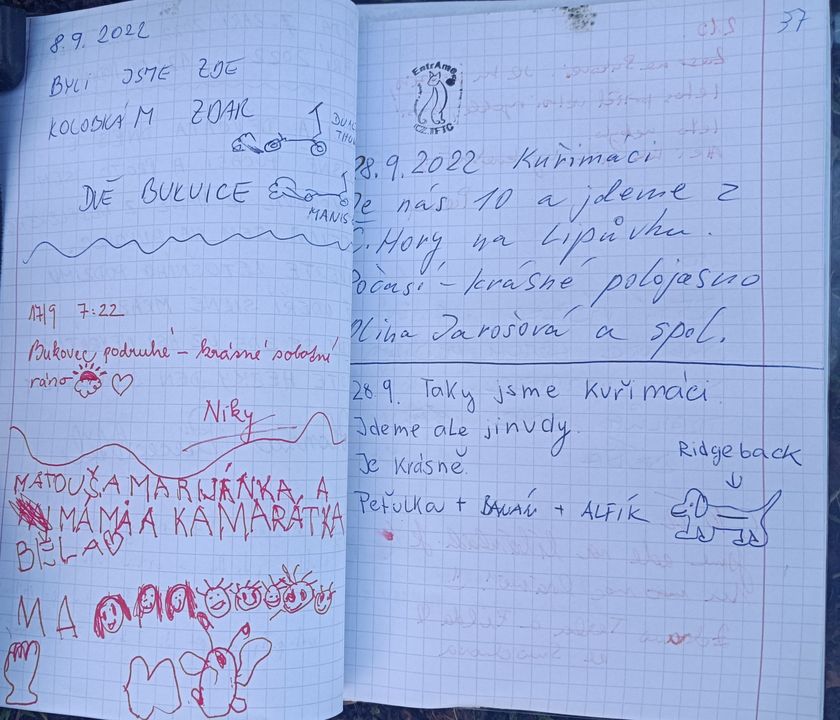 8.9.2022
BYLI JSME ZDE
KOLOBKÁM ZDAR
DVĚ BUKVICE
MANIS
17/9 7:22
Bukovec podruhé – krásné sobotní
ráno
Niky
MATOUŠ A MARIJÁNKA A
MÁMA A KAMARÁTKA
BĚLA
MA
37
EntrAme
28.9.2022 Kuřimáci
Je nás 10 a jdeme z
Č. Hory na Lipůvku.
Počasí – krásné polojasno
Jarošová a spol.
28.9. Taky jsme kuřimáci.
Jdeme ale jinudy.
Je krásně.
Peťulka + + ALFÍK
Ridgeback